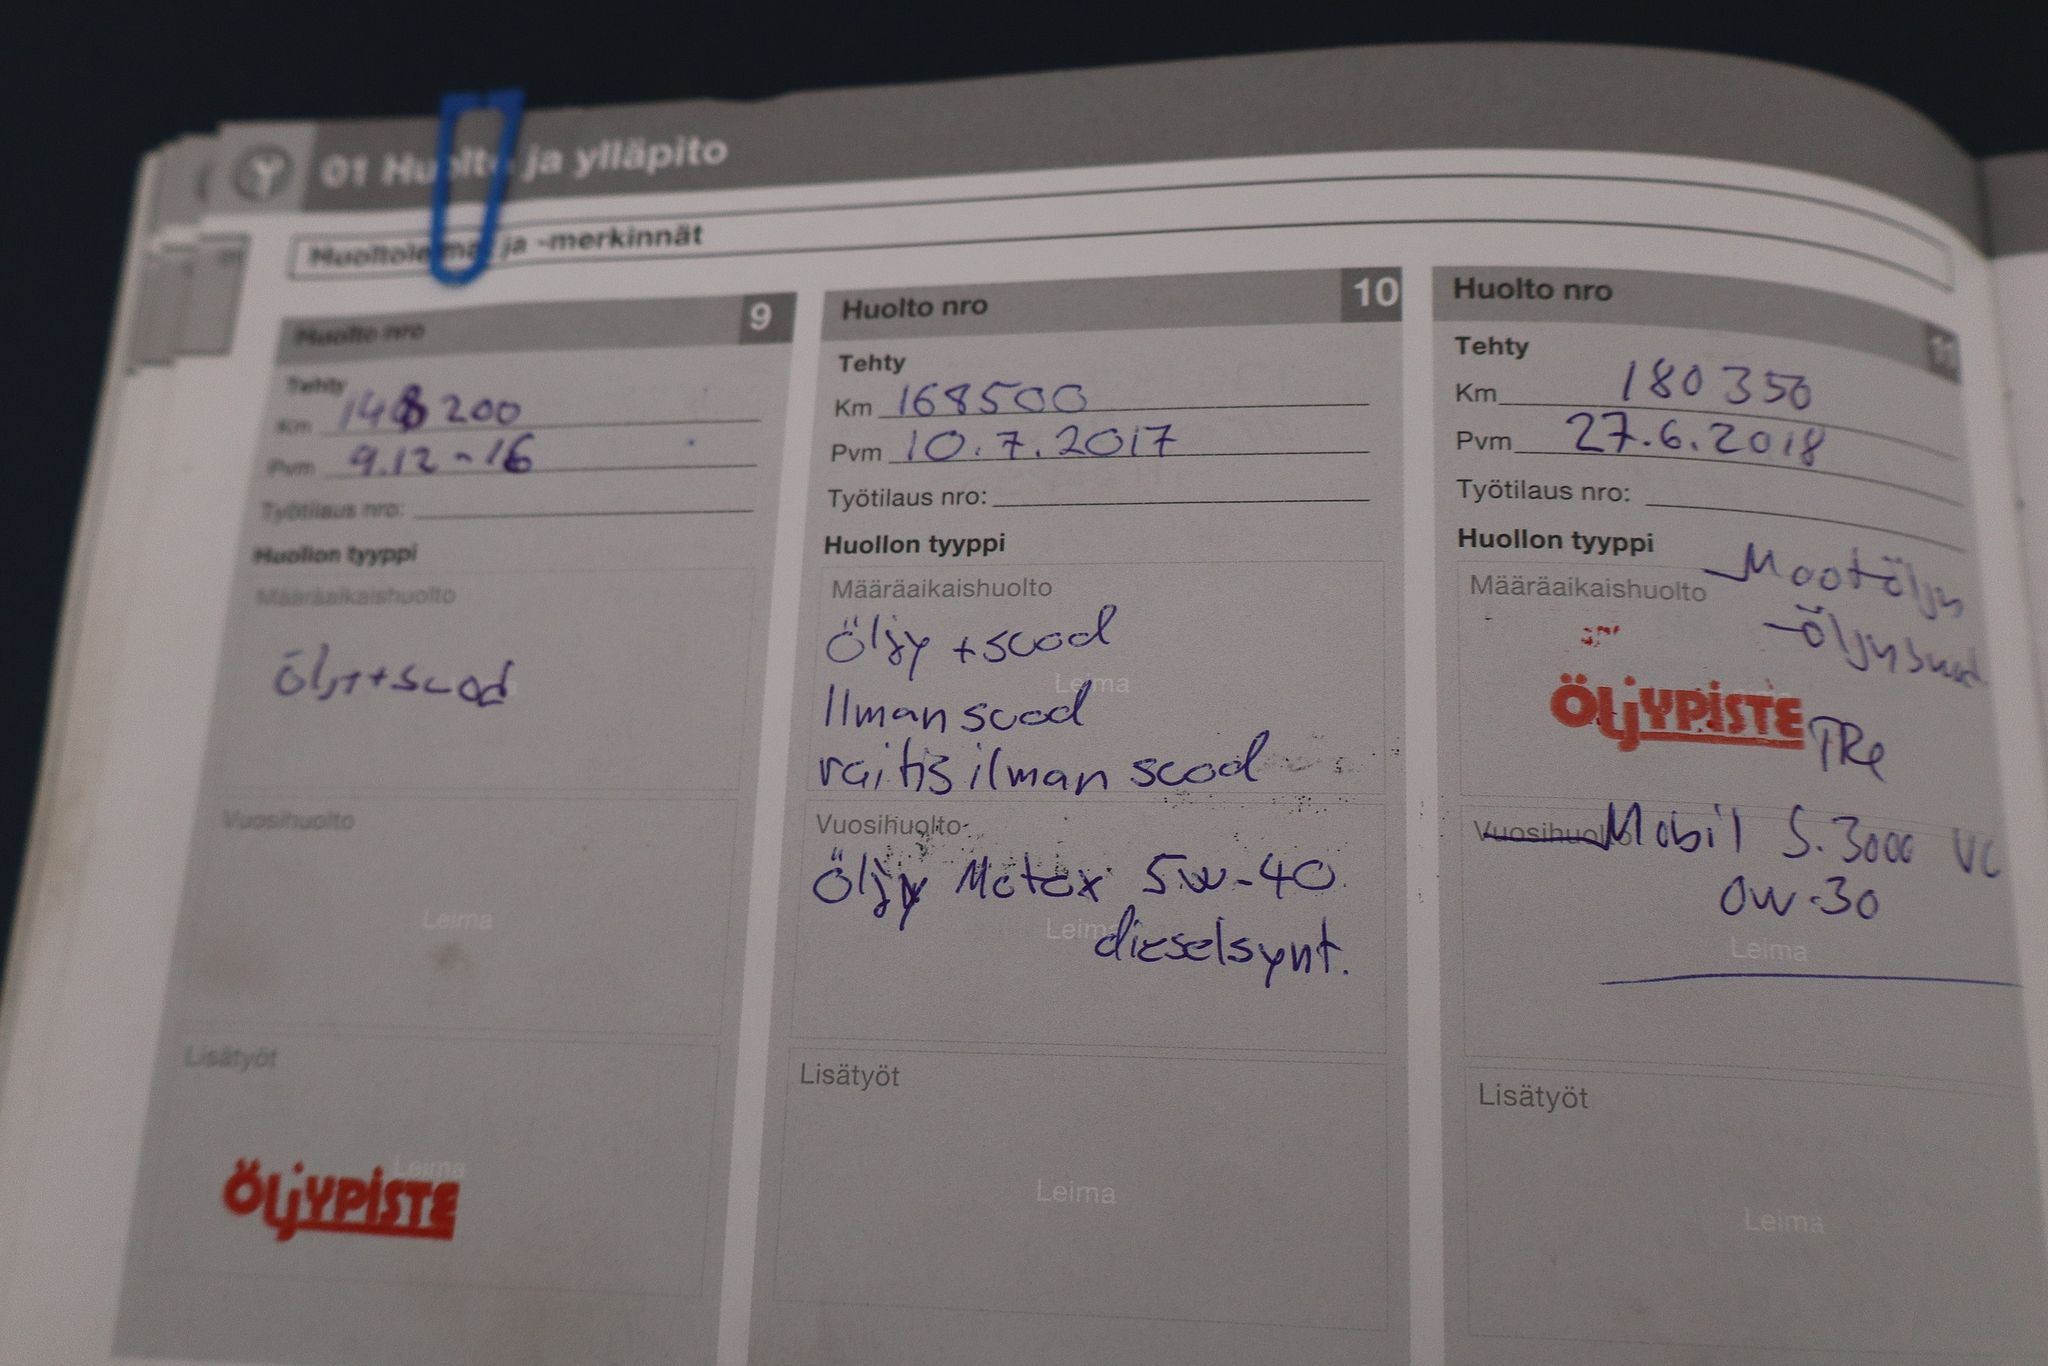 01 Huolto ja ylläpito
Huoltoleimat ja -merkinnät
Huolto nro 9
Tehty
Km 148 200
Pvm 9.12-16
Työtilaus nro:
Huollon tyyppi
Määräaikaishuolto
Öljy+suod
Vuosihuolto
Leima
Lisätyöt
Leima
ÖLJYPISTE
Huolto nro 10
Tehty
Km 168500
Pvm 10.7.2017
Työtilaus nro:
Huollon tyyppi
Määräaikaishuolto
Öljy +suod
Leima
Ilman suod
raitis ilman suod
Vuosihuolto
Öljy Motox 5w-40
Leima
dieselsynt.
Lisätyöt
Leima
Huolto nro 11
Tehty
Km 180 350
Pvm 27.6.2018
Työtilaus nro:
Huollon tyyppi
- Mootöljy
Määräaikaishuolto
- Öljynsuod
ÖLJYPISTE TRe
Vuosihuolto Mobil S.3000
0w-30
Leima
Lisätyöt
Leima